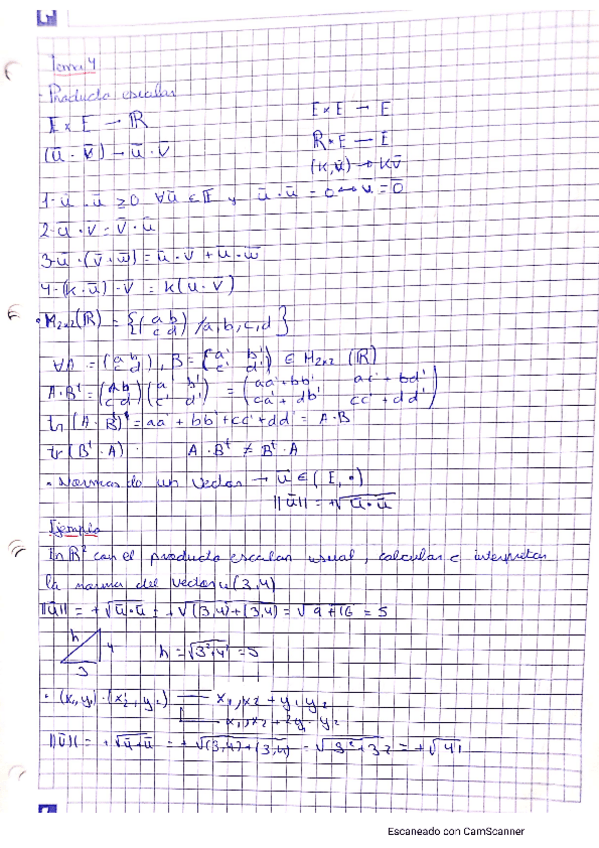 Tema 4
· Producto escalar
E x E → R
E x E → E
(ū · v̄) → ū · v̄
R x E → E
(k, ū) → k v̄
1- ū · ū ≥ 0 ∀ū ∈ E y ū · ū = 0 ↔ ū = 0̄
2- ū · v̄ = v̄ · ū
3- ū · (v̄ + w̄) = ū · v̄ + ū · w̄
4- (k · ū) · v̄ = k (ū · v̄)
· M2x2(R) = {(a b / c d) / a, b, c, d}
∀A = (a b / c d), B = (a' b' / c' d') ∈ M2x2 (R)
A · Bᵗ = (a b / c d)(a' b' / c' d') = (aa' + bb' ac' + bd' / ca' + db' cc' + dd')
tr (A · B)ᵗ = aa' + bb' + cc' + dd' = A · B
tr (Bᵗ · A) · A · Bᵗ ≠ Bᵗ · A
· Normas de un vector → ū ∈ (E, ·)
||ū|| = +√ū · ū
Ejemplo
En R² con el producto escalar usual, calcular e interpretar
la norma del vector u (3,4)
||ū|| = +√ū · ū = +√(3,4) + (3,4) = √9 + 16 = 5
h
4
3
h = √3² + 4² = 5
· (x₁, y₁) · (x₂, y₂) x₁, x2 + y₁ y₂
x₁, x2 + 2y₁ · y₂
||ū|| = +√ū + ū = +√(3,4) + (3,4) = √3² + 32 = +√41
Escaneado con CamScanner